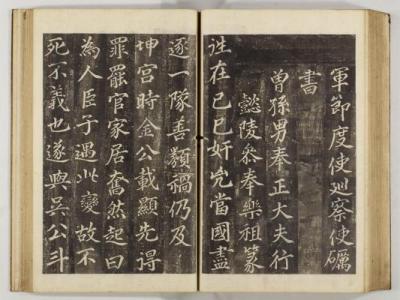 軍節度使廵察使礪
書
曾孫男奉正大夫行
懿陵叅奉樂祖篆
歲在己巳奸兇當國盡
逐一隊善類禍仍及
坤宮時金公載顯先得
罪罷官家居奮然起曰
為人臣子遇此變故不
死不義也遂與吳公斗